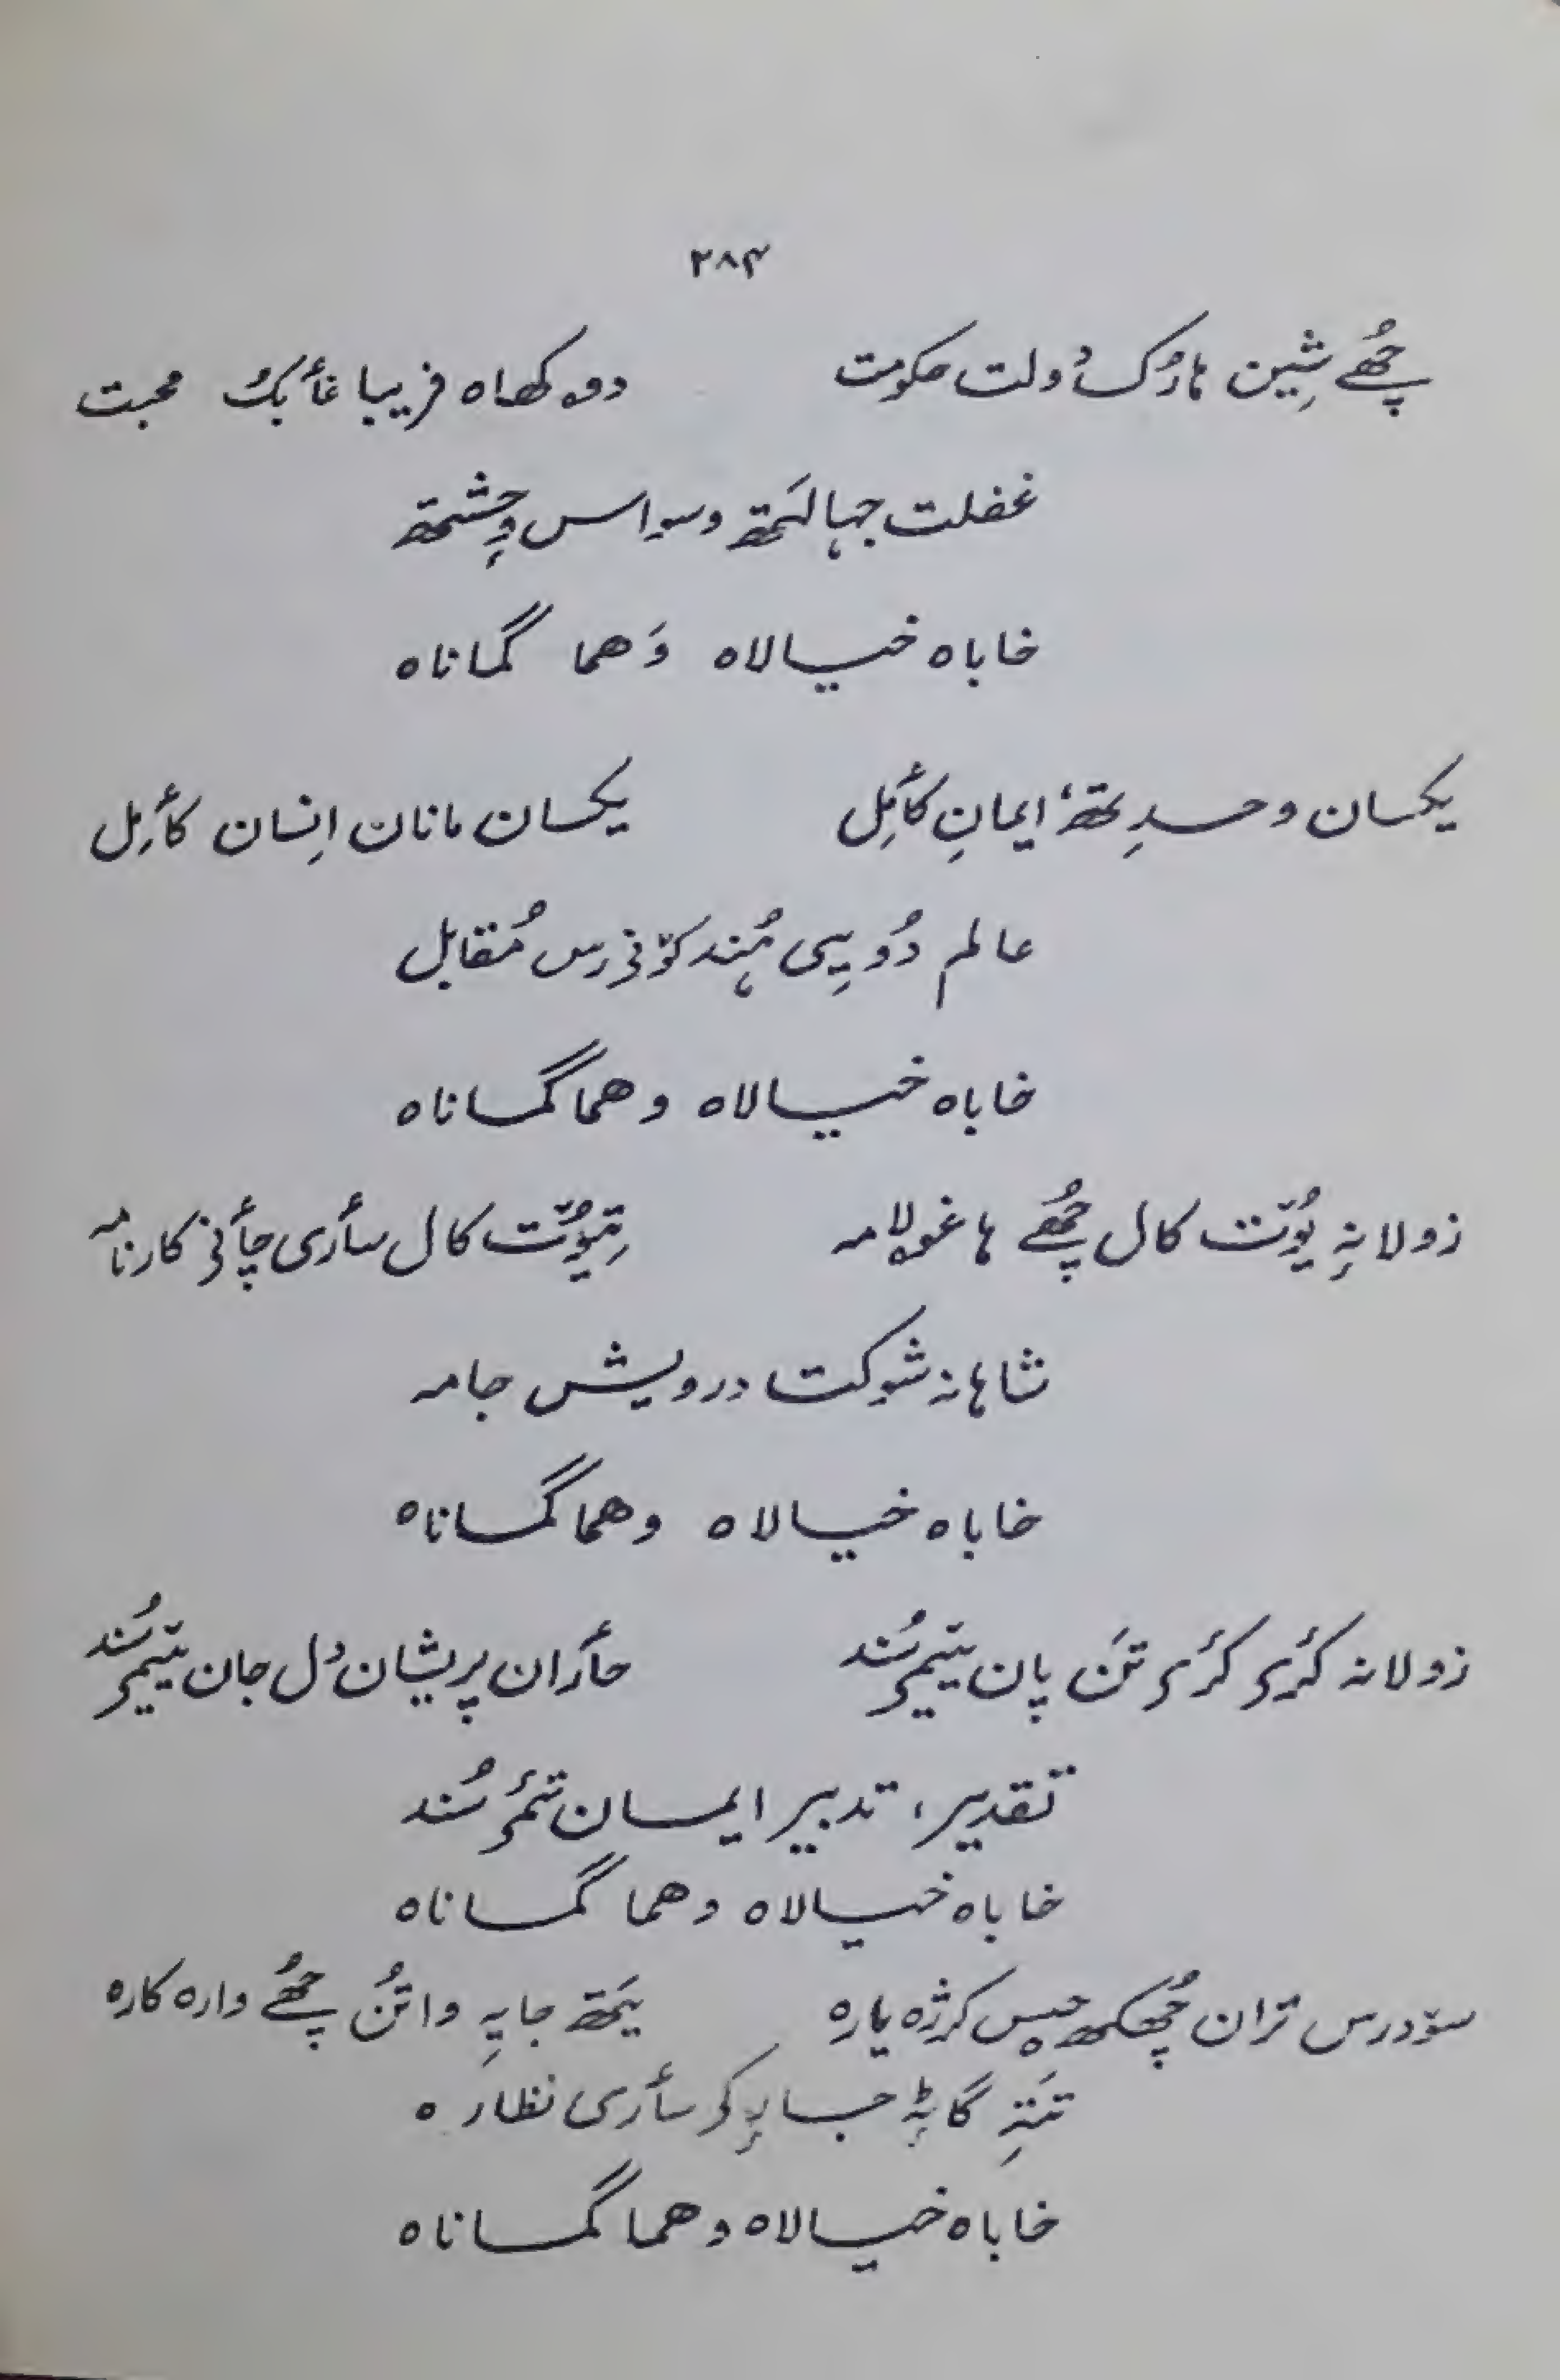 ۲۸۴
چھُے شِین ہارُک دُولت حکومت دوکھاہ فریبا غأبُک محبت
غفلت جہالَتھ وسواس وحشتھ
خاباہ خیالاہ وَھما گماناہ
یکسان وحدتھٕ ایمانِ کأمِل یکسان مانان اِنسان کأمِل
عالم دُویی ہُند کوٚفرس مُقابل
خاباہ خیالاہ وھما گماناہ
زولانہِ یوٗت کال چھُے ہا غولامہ تِیوٗت کال سأری چأنی کارنامہ
شاہانہ شوکت درویش جامہ
خاباہ خیالاہ وھما گماناہ
زولانہ کٔری کٔری تَن پان تٔمی سُند حأران پریشان دِل جان تٔمی سُند
تقدیر، تدبیر ایمان تٔمی سُند
خاباہ خیالاہ وھما گماناہ
سوٚدرس تران چھُکھ چپس کرژہ یارہ یَتھ جایہِ واتُن چھُے وارہ کارہ
تَتہِ گاہِ جایہِ کر سأری نظارہ
خاباہ خیالاہ وھما گماناہ